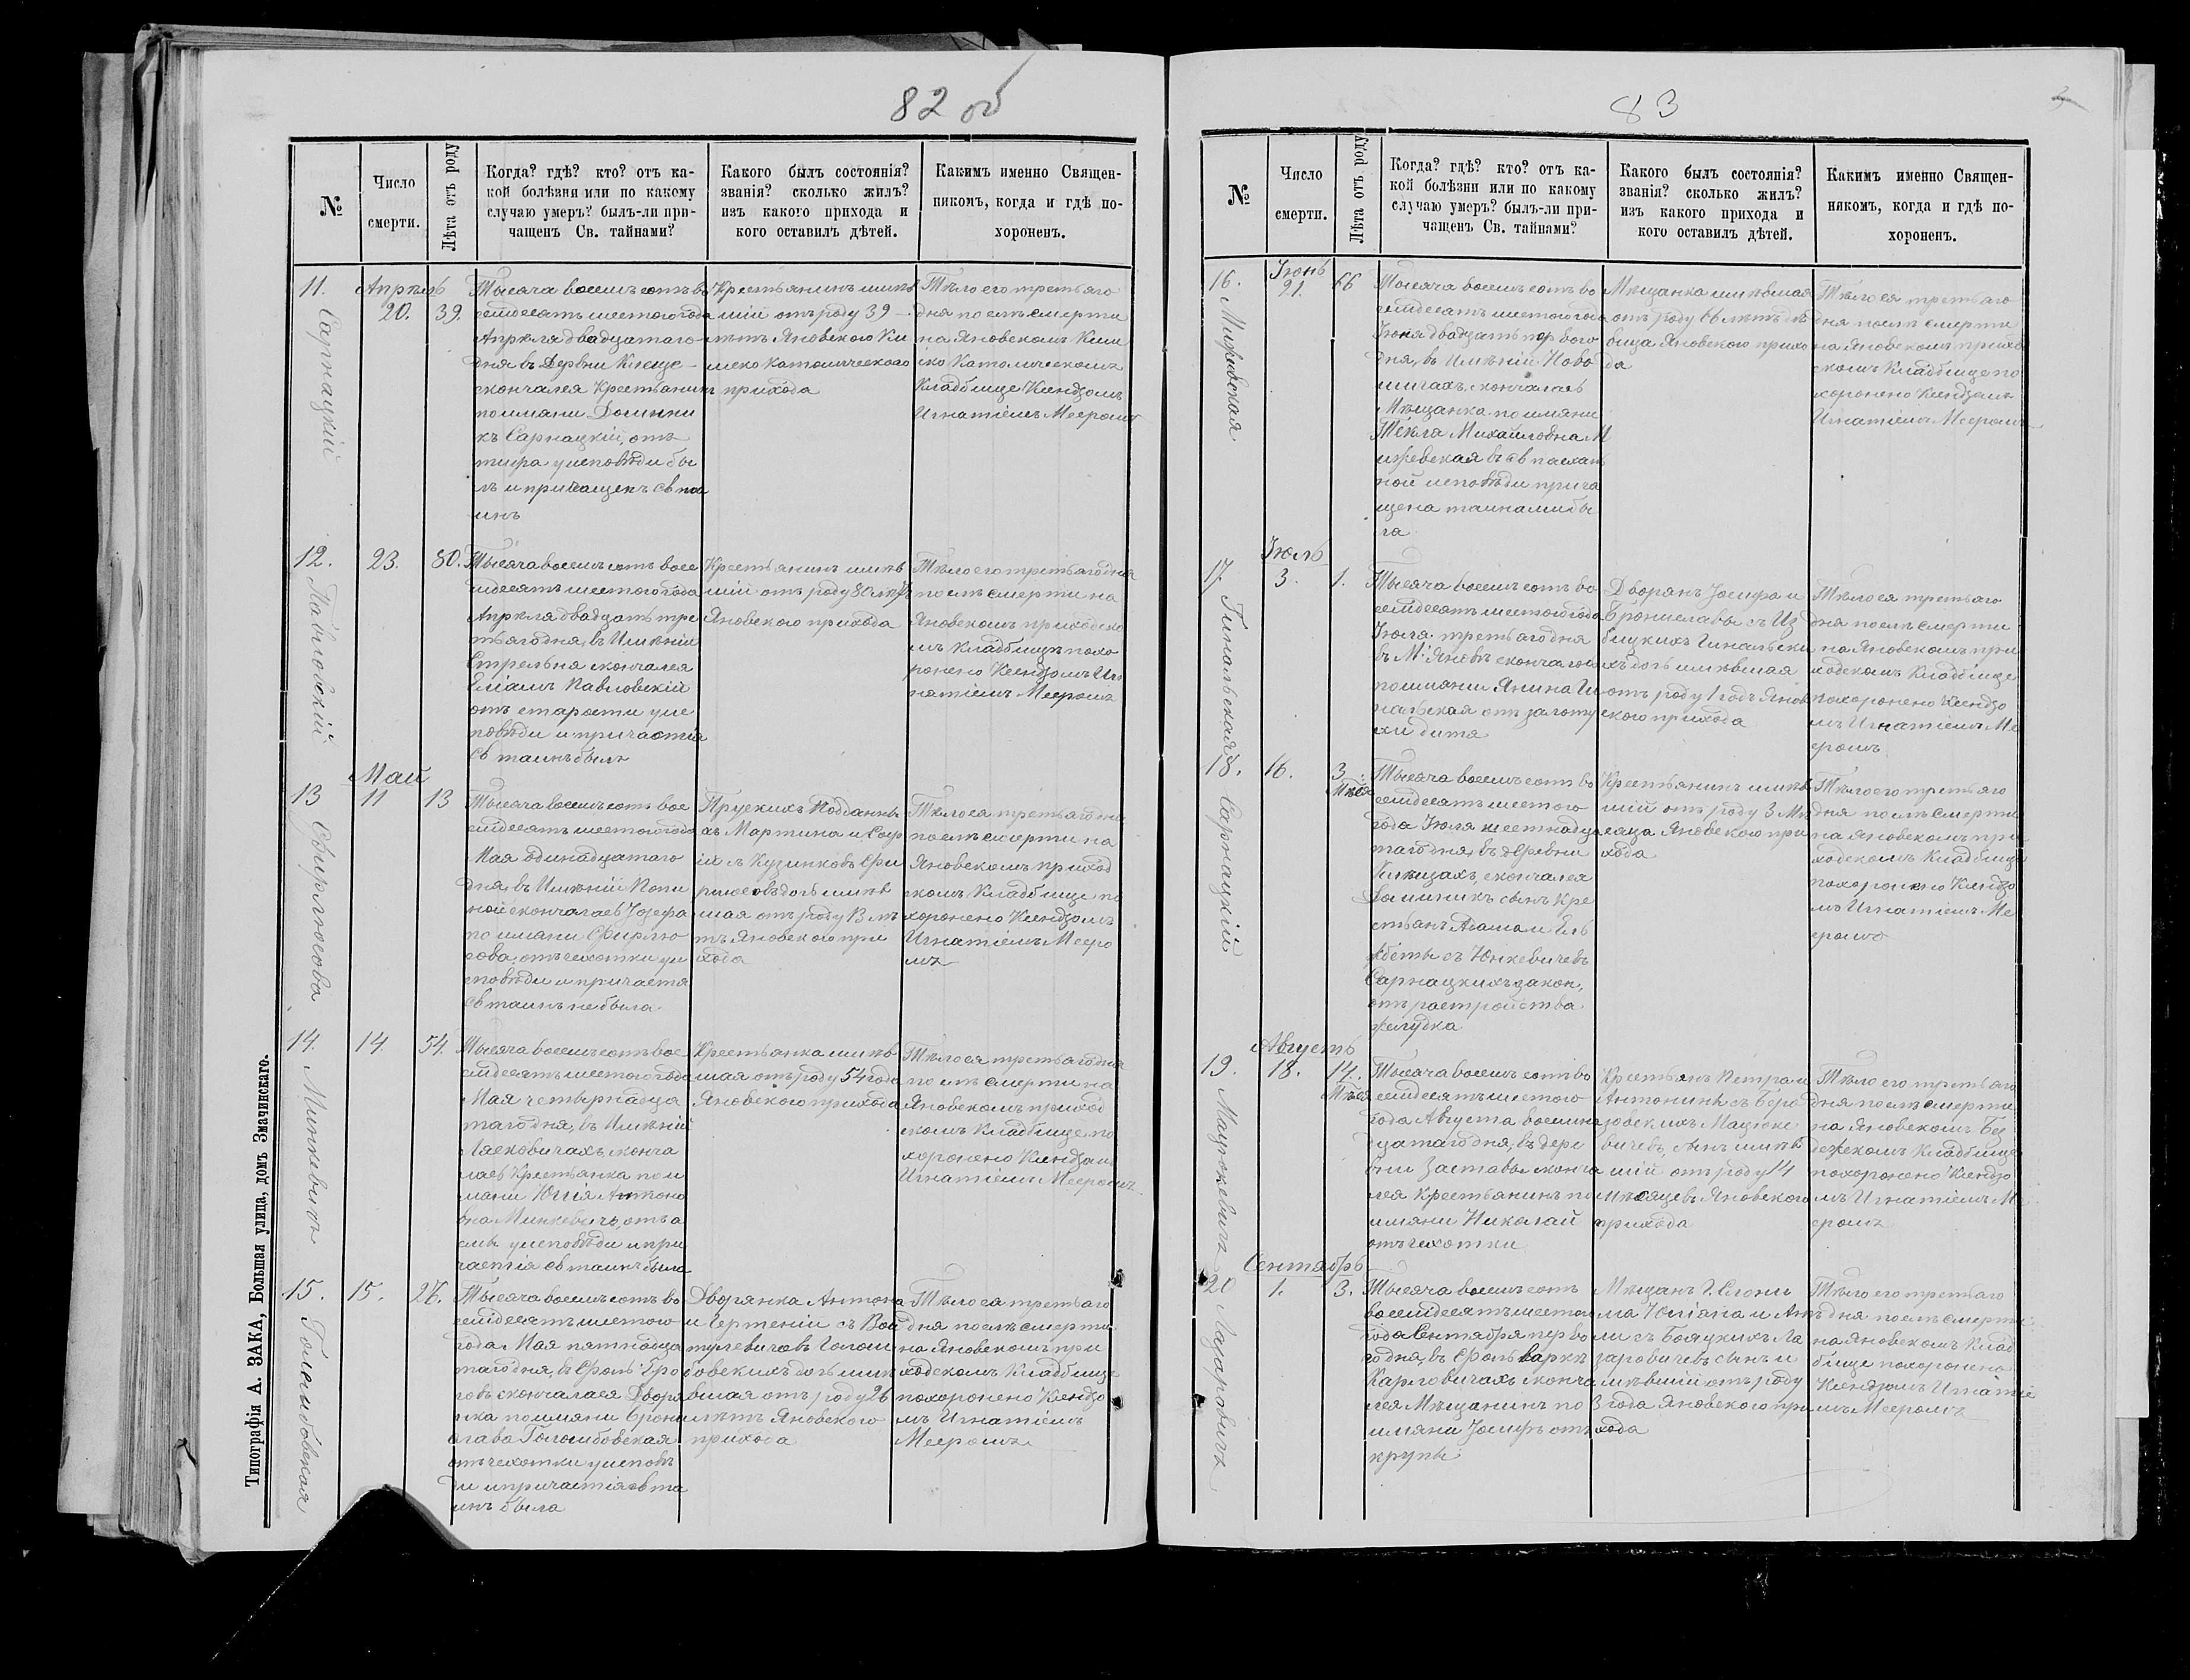 82 об
№
Число
смерти.
Лѣта отъ роду
Когда? гдѣ? кто? отъ ка-
кой болѣзни или по какому
случаю умеръ? былъ-ли при-
чащенъ Св. тайнами?
Какого былъ состоянія?
званія? сколько жилъ?
изъ какого прихода и
кого оставилъ дѣтей.
Какимъ именно Священ-
никомъ, когда и гдѣ по-
хороненъ.
11.
Сарнацкій
Апрѣль
20.
39.
Тысяча восемь сотъ во
семдесятъ шестого года
Апрѣля двадцатаго
дня въ Дервни Клеще
скончался Крестьянинъ
по имяни Домини
къ Сарнацкій, отъ
тифа у исповѣди бы
лъ и причащенъ Св та
инъ
Крестьянинъ имѣв
шій отъ роду 39
лѣтъ Яновского Ри
мско Католического
прихода
Тѣло его третьяго
дня послѣ смерти
на Яновскомъ Рим
ско Католическомъ
Кладбище Ксендзомъ
Игнатіемъ Мееромъ
12.
Павловскій
23.
80.
Тысяча восемь сотъ восе
мдесятъ шестого года
Апрѣля двадцать тре
тьяго дня, въ Имѣніи
Стрельна скончался
Еліамъ Павловскій
отъ старости у ис
повѣди и причастія
Св таинъ былъ
Крестьянинъ имѣв
шій отъ роду 80 лѣтъ
Яновского прихода
Тѣло его третьяго дня
послѣ смерти на
Яновскомъ приходско
мъ Кладбищѣ похо
ронено Ксендзомъ Иг
натіемъ Мееромъ
13
Фирлюсова
Май
11
13
Тысяча восемь сотъ вос
емдесятъ шестого года
Мая одинадцатого
дня, въ Имѣніи Попи
ной скончалась Іозефа
по имяни Фирлю
сова, отъ чехотки у и
споведи и причастя
Св таинъ небыла
Прускихъ Подданны
хъ Мартина и Соф
іи съ Кузинковъ Фи
рлюсовъ дочь имѣв
шая отъ роду 13 лѣ
тъ Яновского при
хода
Тѣло ея третьяго дня
послѣ смерти на
Яновскомъ приход
скомъ Кладбище по
хоронено Ксендзомъ
Игнатіемъ Мееро
мъ
14.
Минкевичъ
14
54.
Тысяча восемь сотъ вос
емдесятъ шестого года
Мая четырнадца
таго дня, въ Имѣніи
Лясковичахъ, сконча
лась Крестьянка по и
мяни Юлія Антоно
вна Минкевичъ, отъ а
смы у исповѣди и при
частія св таинъ была
Крестьянка имѣв
шая отъ роду 54 года
Яновского прихода
Тѣло ея третьяго дня
послѣ смерти на
Яновскомъ приход
скомъ Кладбище по
хоронено Ксендзомъ
Игнатіемъ Мееромъ
15.
Голомбовская
15.
26.
Тысяча восемь сотъ во
семдесятъ шестого
года Мая пятнадца
таго дня, въ Фоль: Гро
скончалася Дворя
нка по имяни Брони
слава Голомбовская
отъ чехотки у исповѣ
ди и причастія св та
инъ была
Дворянка Антона
и Гертеніи съ Вой
туревичовъ Голом
бовскихъ дочь имѣ
вшая отъ роду 26
лѣтъ Яновского
прихода
Тѣло ея третьяго
дня послѣ смерти
на Яновскомъ при
ходскомъ Кладбище
похоронено Ксендзо
мъ Игнатіемъ
Меером
Типографія А. ЗАКА, Большая улица, домъ Змачинскаго.
83
№
Число
смерти.
Лѣта отъ роду
Когда? гдѣ? кто? отъ ка-
кой болѣзни или по какому
случаю умеръ? былъ-ли при-
чащенъ Св. тайнами?
Какого былъ состоянія?
званія? сколько жилъ?
изъ какого прихода и
кого оставилъ дѣтей.
Какимъ именно Священ-
никомъ, когда и гдѣ по-
хороненъ.
16.
Мижевская
Іюнь
21.
66
Тысяча восемь сотъ во
семдесятъ шестого года
Іюня двадцать первого
дня, въ Имѣніи Ново
шигахъ, скончалась
Мѣщанка по имяни
Текля Михайловна М
ижевская
ной исповѣди прича
щена таинами бы
ла
Мѣщанка имѣвшая
отъ роду 66 лѣтъ дѣ
вица Яновского прихо
да
Тѣло ея третьяго
дня послѣ смерти
на Яновскомъ прихо
скомъ Кладбище по
хоронено Ксендзомъ
Игнатіемъ Меером
17.
Гинальская
Іюль
3.
1.
Тысяча восемь сотъ во
семдесятъ шестого года
Іюля третьяго дня
въ М: Яновѣ скончалось
по имяни Янина Ги
нальская отъ золоту
хи дитя
Дворянъ Іосифа и
Брониславы съ Из
бицкихъ Гинальски
хъ дочь имѣвшая
отъ роду 1 годъ Янов
ского прихода
Тѣло ея третьяго
дня послѣ смерти
на Яновскомъ при
ходскомъ Кладбище
похоронено Ксендзо
мъ Игнатіемъ Ме
еромъ
18.
Сарнацкій
16.
3
Мѣся
Тысяча восемь сотъ во
семдесятъ шестого
года Іюля шестнадца
таго дня, въ деревни
Клещахъ, скончался
Доминикъ сынъ Кре
стьянъ Адама и Ель
жбеты съ Юнкевичевъ
Сарнацкихъ закон,
отъ растройства
желудка
Крестьянинъ имѣв
шій отъ роду 3 Мѣ
сяца Яновского при
хода
Тѣло его третьяго
дня послѣ смерти
на Яновскомъ при
ходскомъ Кладбище
похоронено Ксендзо
мъ Игнатіемъ Ме
еромъ
19.
Мацюкевичъ
Августъ
18.
14.
Мѣся
Тысяча восемь сотъ во
семдесятъ шестого
года Августа восемна
дцатаго дня, въ дере
вни Заставы сконча
лся Крестьянинъ по
имяни Николай
отъ чехотки
Крестьянъ Петра и
Антонины съ Беро
зовскихъ Мацюке
вичевъ, сынъ имѣв
шій отъ роду 14
мѣсяцевъ Яновского
прихода
Тѣло его третьяго
дня послѣ смерти
на Яновскомъ Бу
дежскомъ Кладбище
похоронено Ксендзо
мъ Игнатіемъ М
еромъ
20
Лазаровичъ
Сентябрь
1.
3.
Тысяча восемь сотъ
восемдесятъ шестого
года Сентября перво
го дня, въ Фольваркѣ
Карловичахъ сконча
лся Мѣщанинъ по
имяни Іосифъ отъ
крупы
Мѣщанъ Г. Слони
ма Юліяна и Ам
ли съ Бояцкихъ Ла
заровичевъ сынъ и
мѣвшій отъ роду
3 года Яновского при
хода
Тѣло его третьяго
дня послѣ смерти
на Яновскомъ Клад
бище похоронено
Ксендзомъ Игнатіе
мъ Меером